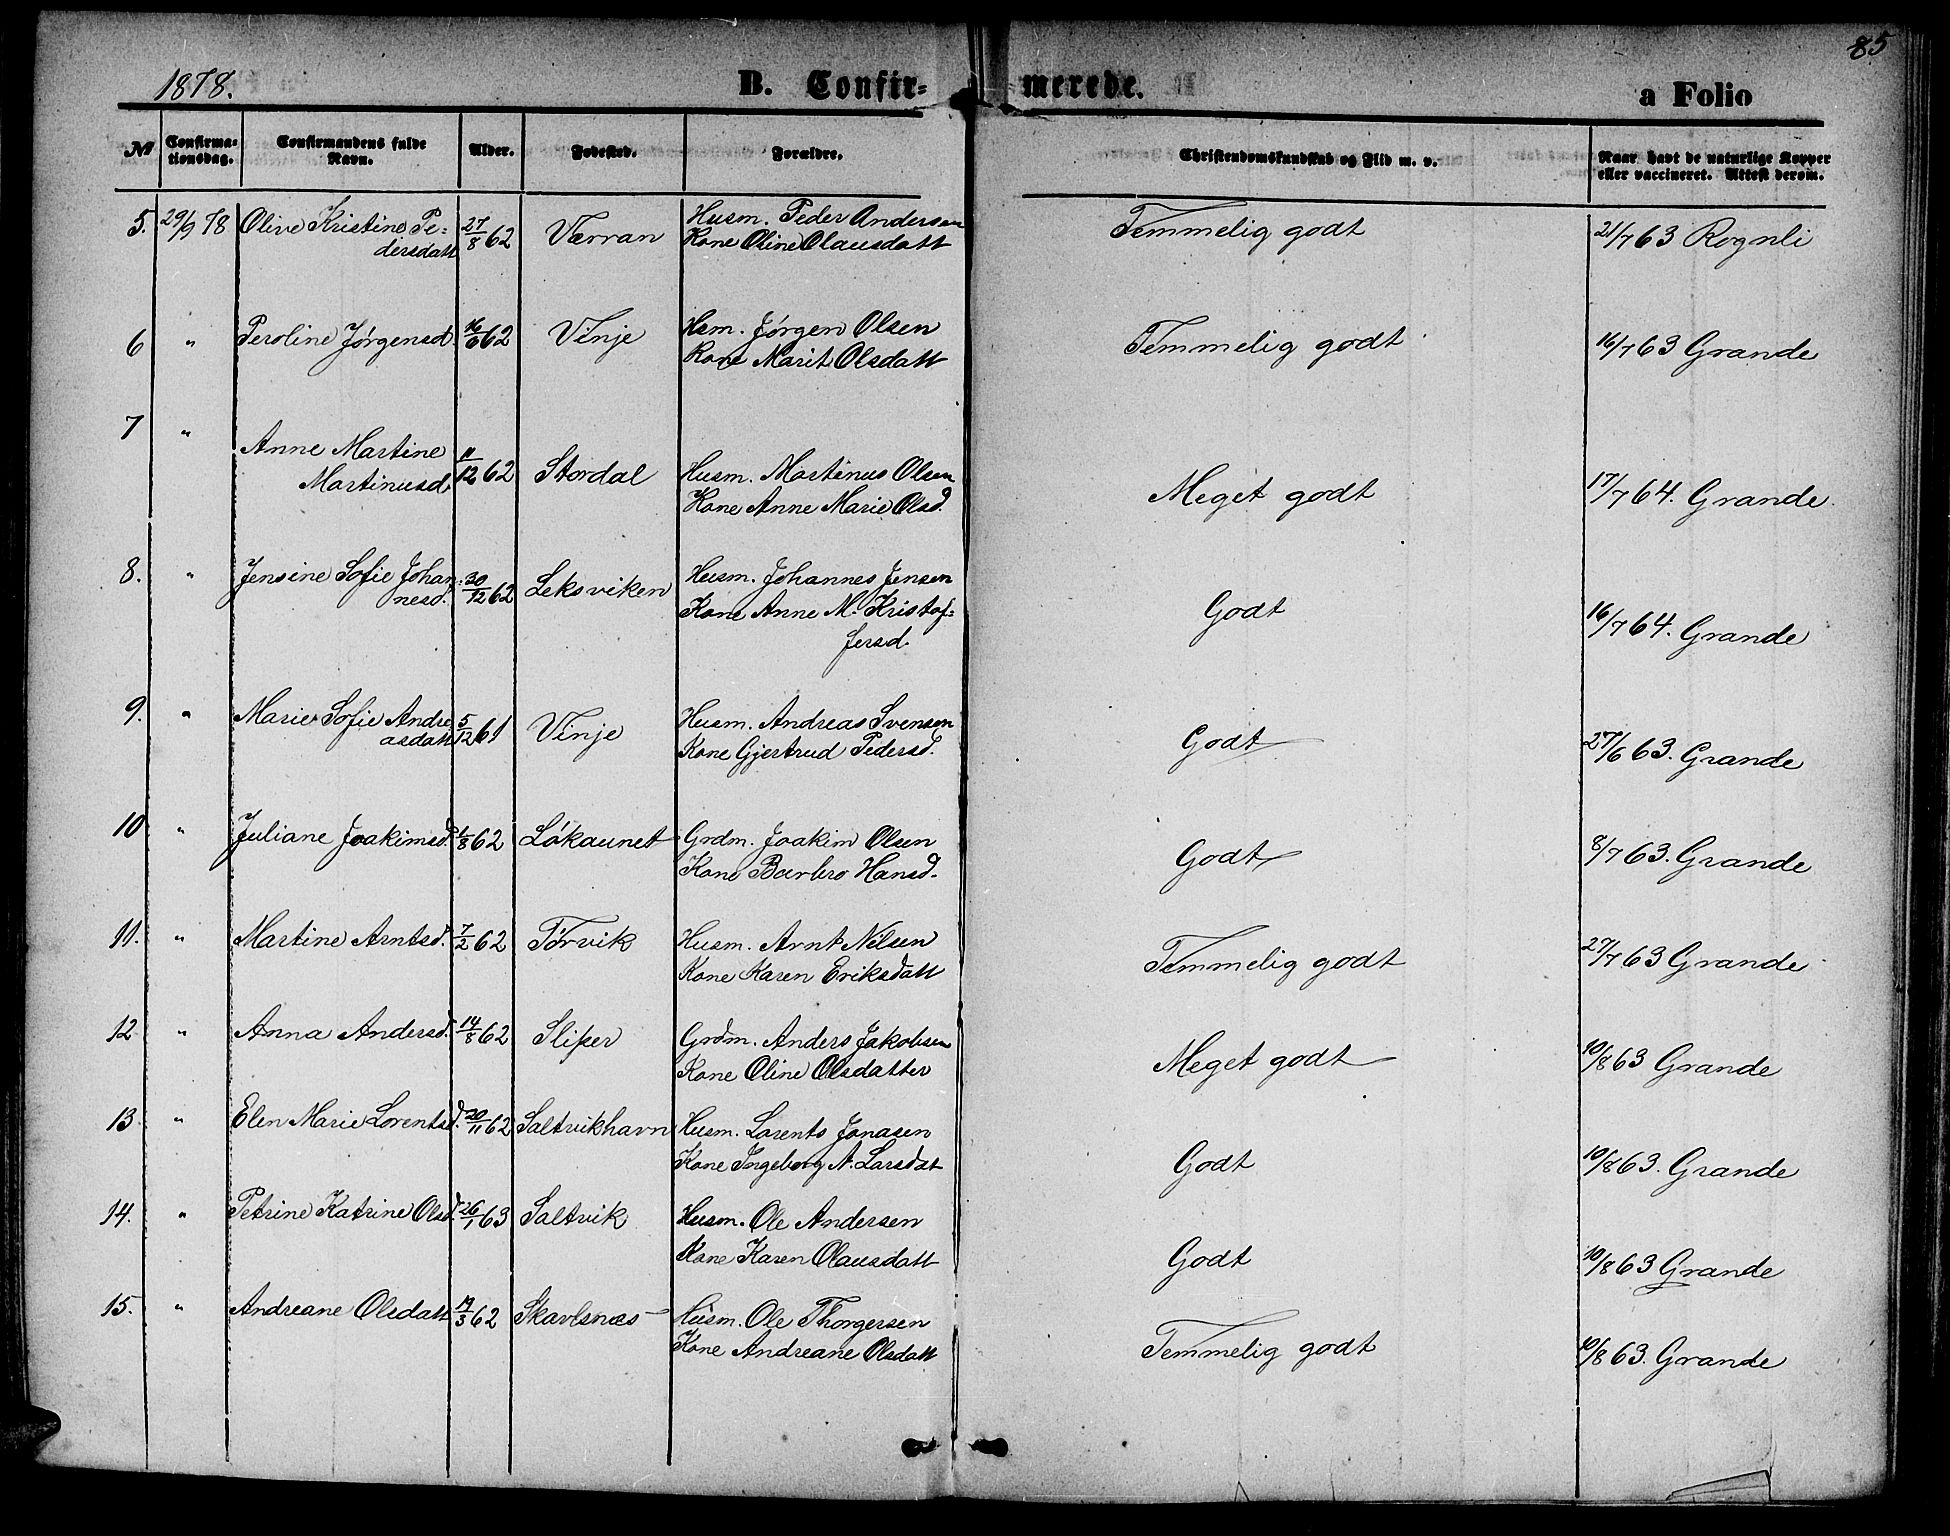 1878.
B. Confir-
merede.
a Folio
85
№
Confirma-
tionsdag.
Confirmandens fulde
Navn.
Alder.
Fødested.
Forældre.
Christendomskundskab og Flid m. v.
Naar havt de naturlige Kopper
eller vaccineret. Attest derom.
5. 29/9 78 Olive Kristine Pe-
dersdatt 27/8 62 Værran Husm. Peder Andersen
Kone Oline Olausdatt Temmelig godt 21/7 63 Rognli
6 " Peroline Jørgensd. 62 Vinje Hsm. Jørgen Olsen
Kone Marit Olsdatt Temmelig godt 16/7 63 Grande
7 " Anne Martine
Martinusd. 11/12 62 Stordal Husm. Martinus Olsen
Kone Anne Marie Olsd. Meget godt 17/7 64. Grande
8. " Jensine Sofie Johan-
nesd. 30/12 62 Leksviken Husm. Johannes Jensen
Kone Anne M. Kristof-
fersd. Godt 16/7 64. Grande
9. " Marie Sofie Andre
asdatt 5/12 61 Vinje Husm. Andreas Svensen
Kone Gjertrud Pedersd. Godt 27/6 63. Grande
10 " Juliane Joakimsd. 1/8 62 Løkaunet Grdm. Joakim Olsen
Kone Barbro Hansd. Godt 8/7 63. Grande
11. " Martine Arntsd. 7/2 62 Tørvik Husm. Arnt Nilsen
Kone Karen Eriksdatt Temmelig godt 27/7 63 Grande
12 " Anna Andersd. 14/8 62 Sliper Grdm. Anders Jakobsen
Kone Oline Olsdatter Meget godt 10/8 63 Grande
13. " Elen Marie Lorentsd. 20/11 62 Saltvikhavn Husm. Lorents Jonasen
Kone Ingeborg A. Larsdat Godt 10/8 63. Grande
14. " Petrine Katrine Olsd. 26/1 63 Saltvik Husm. Ole Andersen
Kone Karen Olausdatt Godt 10/8 63 Grande
15. " Andreane Olsdatt 62 Skavlsnæs Husm. Ole Thorgersen
Kone Andreane Olsdatt Temmelig godt 10/8 63. Grande